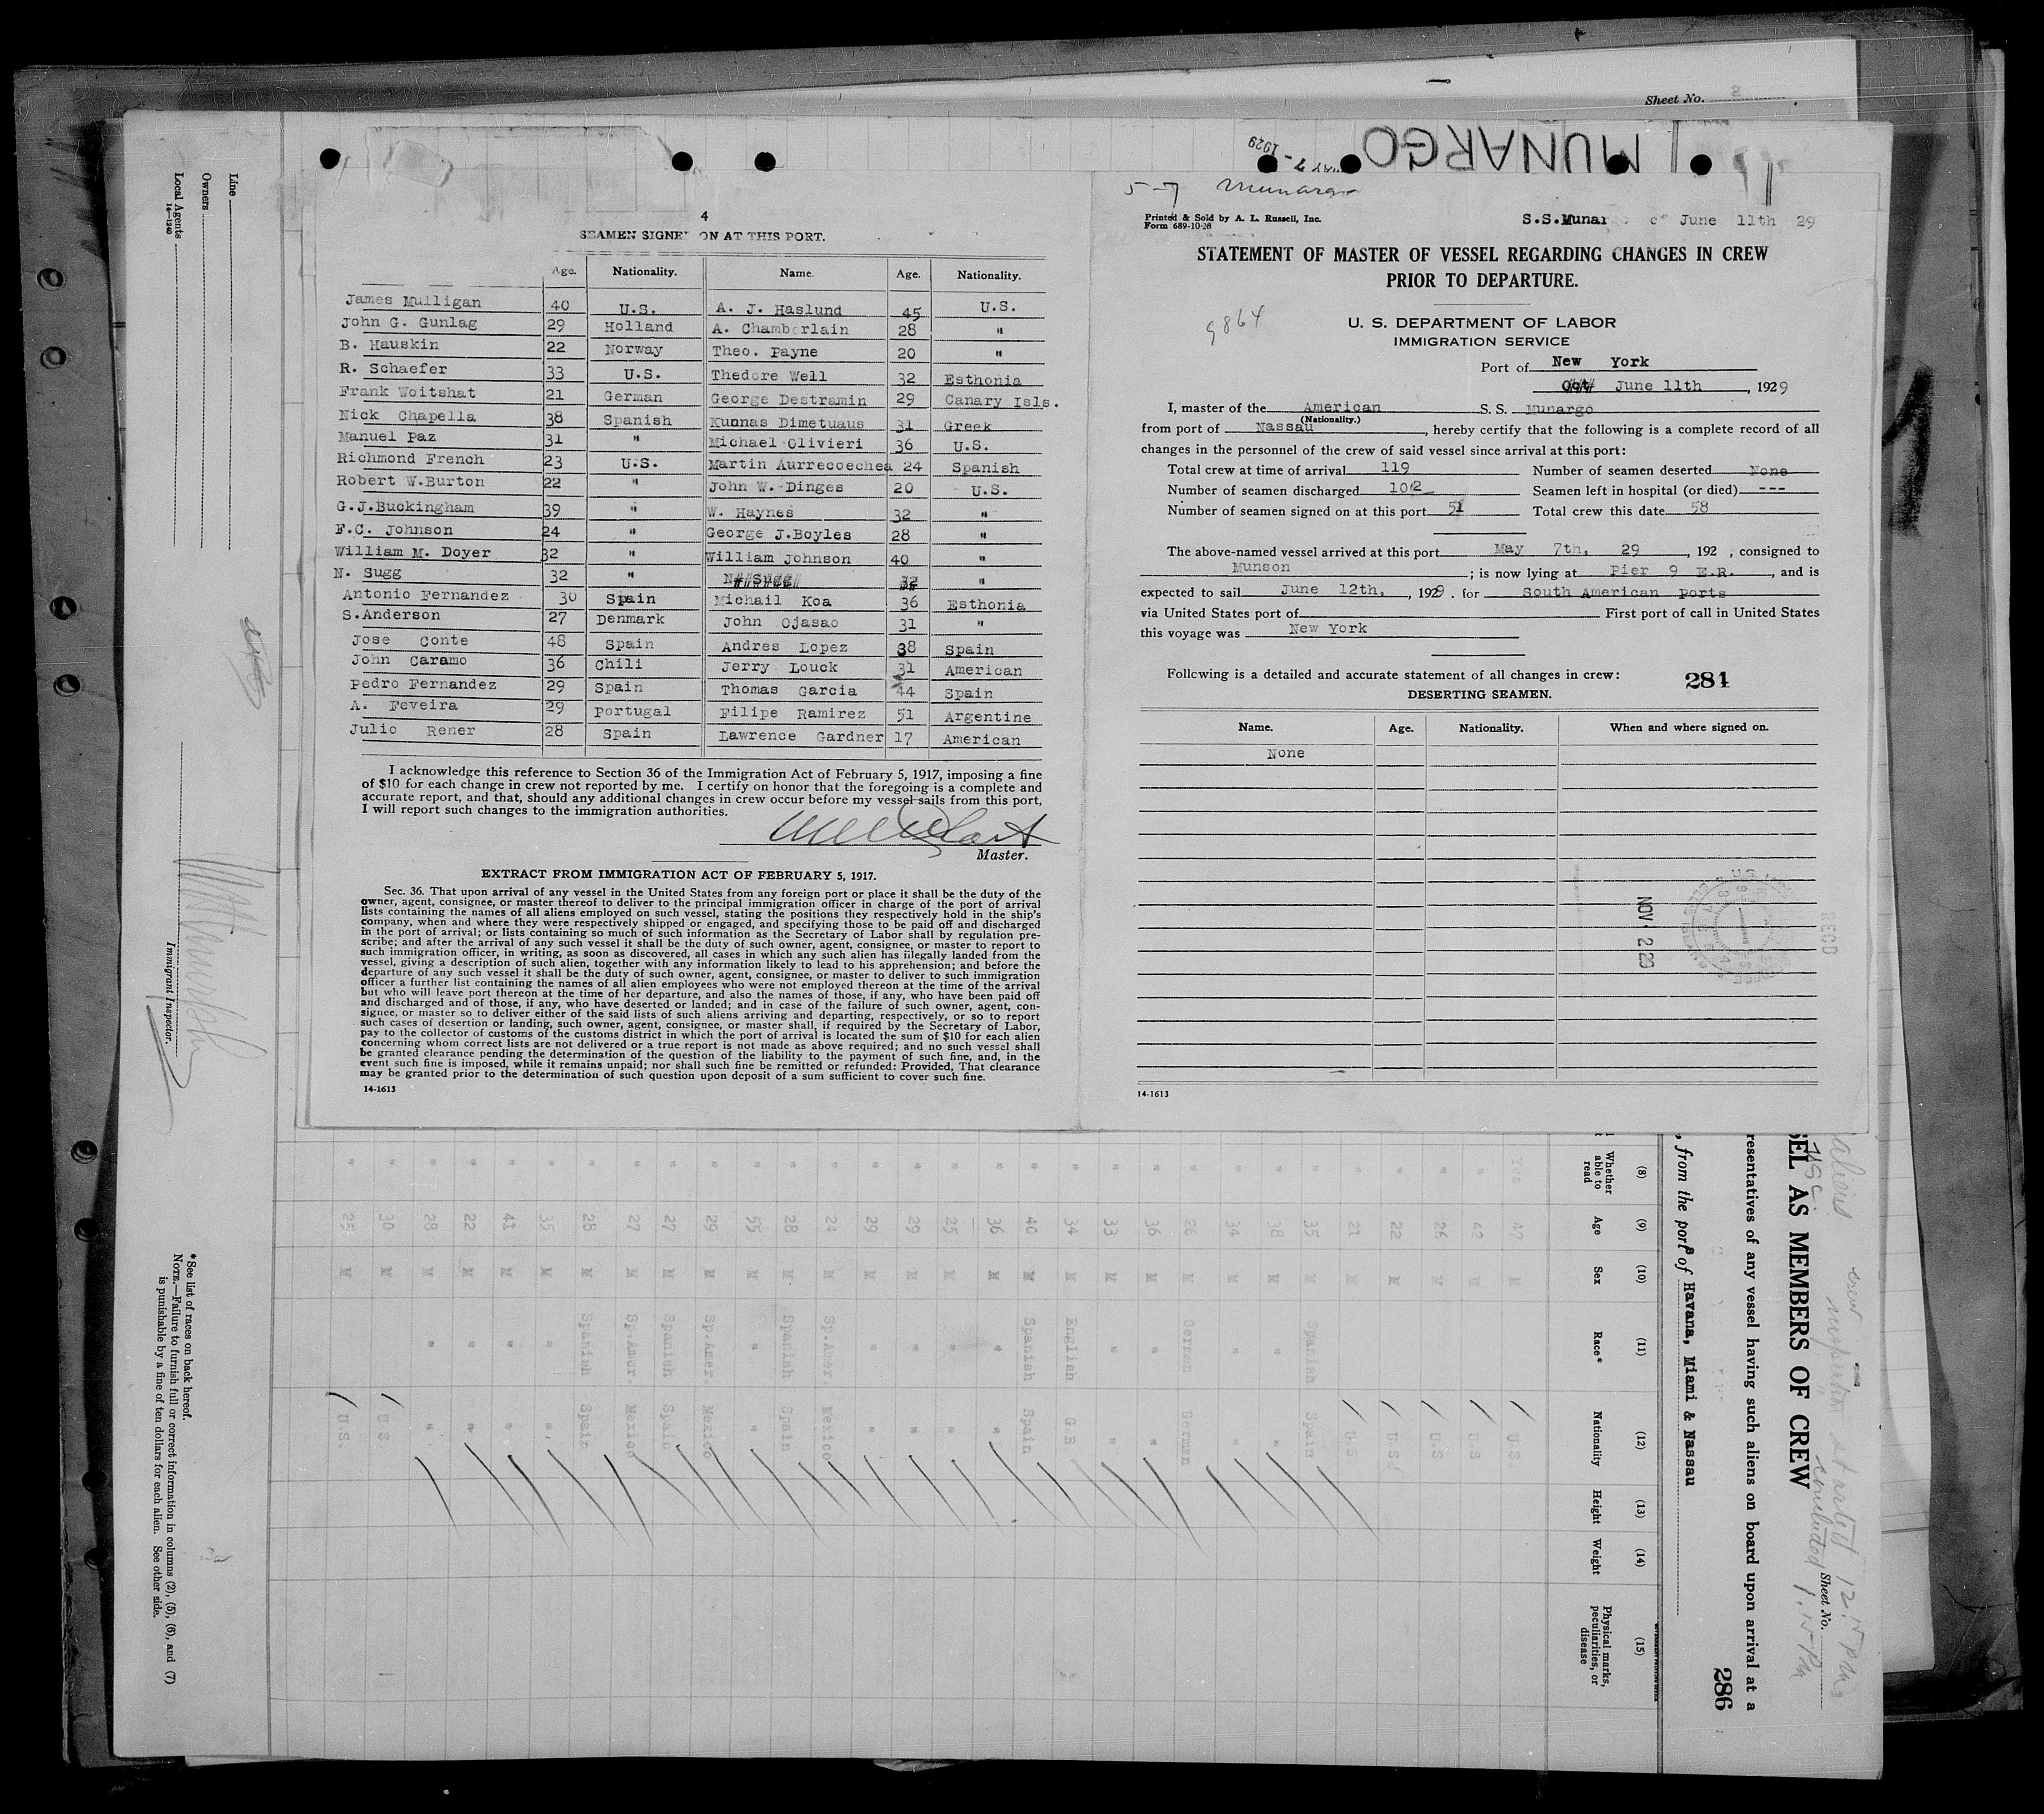 Sheet No. 2
MUNARGO
MAY 7 - 1929
4
SEAMEN SIGNED ON AT THIS PORT.
Age. Nationality. Name. Age. Nationality.
James Mulligan 40 U.S. A. J. Haslund 45 U.S.
John G. Gunlag 29 Holland A. Chamberlain 28 "
B. Hauskin 22 Norway Theo. Payne 20 "
R. Schaefer 33 U.S. Thedore Well 32 Esthonia
Frank Woitshat 21 German George Destramin 29 Canary Isls.
Nick Chapella 38 Spanish Kunnas Dimetuaus 31 Greek
Manuel Paz 31 " Michael Olivieri 36 U.S.
Richmond French 23 U.S. Martin Aurrecoechea 24 Spanish
Robert W.Burton 22 " John W. Dinges 20 U.S.
G.J.Buckingham 39 " W. Haynes 32 "
F.C. Johnson 24 " George J.Boyles 28 "
William M. Doyer 32 " William Johnson 40 "
N. Sugg 32 " N. Sugg 32 "
Antonio Fernandez 30 Spain Michail Koa 36 Esthonia
S.Anderson 27 Denmark John Ojasao 31 "
Jose Conte 48 Spain Andres Lopez 38 Spain
John Caramo 36 Chili Jerry Louck 31 American
Pedro Fernandez 29 Spain Thomas Garcia 44 Spain
A. Feveira 29 Portugal Filipe Ramirez 51 Argentine
Julio Rener 28 Spain Lawrence Gardner 17 American
I acknowledge this reference to Section 36 of the Immigration Act of February 5, 1917, imposing a fine
of $10 for each change in crew not reported by me. I certify on honor that the foregoing is a complete and
accurate report, and that, should any additional changes in crew occur before my vessel sails from this port,
I will report such changes to the immigration authorities.
Master.
EXTRACT FROM IMMIGRATION ACT OF FEBRUARY 5, 1917.
Sec. 36. That upon arrival of any vessel in the United States from any foreign port or place it shall be the duty of the
owner, agent, consignee, or master thereof to deliver to the principal immigration officer in charge of the port of arrival
lists containing the names of all aliens employed on such vessel, stating the positions they respectively hold in the ship's
company, when and where they were respectively shipped or engaged, and specifying those to be paid off and discharged
in the port of arrival; or lists containing so much of such information as the Secretary of Labor shall by regulation pre-
scribe; and after the arrival of any such vessel it shall be the duty of such owner, agent, consignee, or master to report to
such immigration officer, in writing, as soon as discovered, all cases in which any such alien has illegally landed from the
vessel, giving a description of such alien, together with any information likely to lead to his apprehension; and before the
departure of any such vessel it shall be the duty of such owner, agent, consignee, or master to deliver to such immigration
officer a further list containing the names of all alien employees who were not employed thereon at the time of the arrival
but who will leave port thereon at the time of her departure, and also the names of those, if any, who have been paid off
and discharged and of those, if any, who have deserted or landed; and in case of the failure of such owner, agent, con-
signee, or master so to deliver either of the said lists of such aliens arriving and departing, respectively, or so to report
such cases of desertion or landing, such owner, agent, consignee, or master shall, if required by the Secretary of Labor,
pay to the collector of customs of the customs district in which the port of arrival is located the sum of $10 for each alien
concerning whom correct lists are not delivered or a true report is not made as above required; and no such vessel shall
be granted clearance pending the determination of the question of the liability to the payment of such fine, and, in the
event such fine is imposed, while it remains unpaid; nor shall such fine be remitted or refunded: Provided, That clearance
may be granted prior to the determination of such question upon deposit of a sum sufficient to cover such fine.
14-1613
5-7 Munargo
Printed & Sold by A. L. Russell, Inc.
Form 689-10-28
S.S.Munar of June 11th 29
STATEMENT OF MASTER OF VESSEL REGARDING CHANGES IN CREW
PRIOR TO DEPARTURE.
9864
U. S. DEPARTMENT OF LABOR
IMMIGRATION SERVICE
Port of New York
June 11th, 1929
I, master of the American S. S. Munargo
(Nationality.)
from port of Nassau, hereby certify that the following is a complete record of all
changes in the personnel of the crew of said vessel since arrival at this port:
Total crew at time of arrival 119 Number of seamen deserted None
Number of seamen discharged 102 Seamen left in hospital (or died) ---
Number of seamen signed on at this port 51 Total crew this date 58
The above-named vessel arrived at this port May 7th, 29, 192 , consigned to
Munson; is now lying at Pier 9 E.R., and is
expected to sail June 12th, , 1929. for South American ports
via United States port of First port of call in United States
this voyage was New York
Following is a detailed and accurate statement of all changes in crew: 281
DESERTING SEAMEN.
Name. Age. Nationality. When and where signed on.
None
NOV 2 29
RECD
14-1613
Line
Owners
Local Agents
14-1240
Immigrant Inspector.
*See list of races on back hereof.
NOTE.—Failure to furnish full or correct information in columns (2), (5), (6), and (7)
is punishable by a fine of ten dollars for each alien. See other side.
SEL AS MEMBERS OF CREW
Sheet No.
resentatives of any vessel having such aliens on board upon arrival at a
286
, from the port of Havana, Miami & Nassau
(8) (9) (10) (11) (12) (13) (14) (15)
Whether able to read Age Sex Race* Nationality Height Weight Physical marks, peculiarities, or disease
Yes 47 M U S
" 42 M U S
" 26 M U S
" 22 M U S
" 21 M U S
" 35 M Spanish Spain
" 38 M " "
" 34 M " "
" 26 M German German
" 36 M " "
" 33 M " "
" 34 M English G B
" 40 M Spanish Spain
" 36 M " "
" 25 M " "
" 29 M " "
" 29 M " "
" 24 M Sp.Amer. Mexico
" 28 M Spanish Spain
" 55 M " "
" 29 M Sp.Amer. Mexico
" 27 M Spanish Spain
" 27 M Sp.Amer. Mexico
" 28 M Spanish Spain
" 35 M " "
" 41 M " "
" 22 M " "
" 28 M " "
" 30 M U S
" 25 M U S.